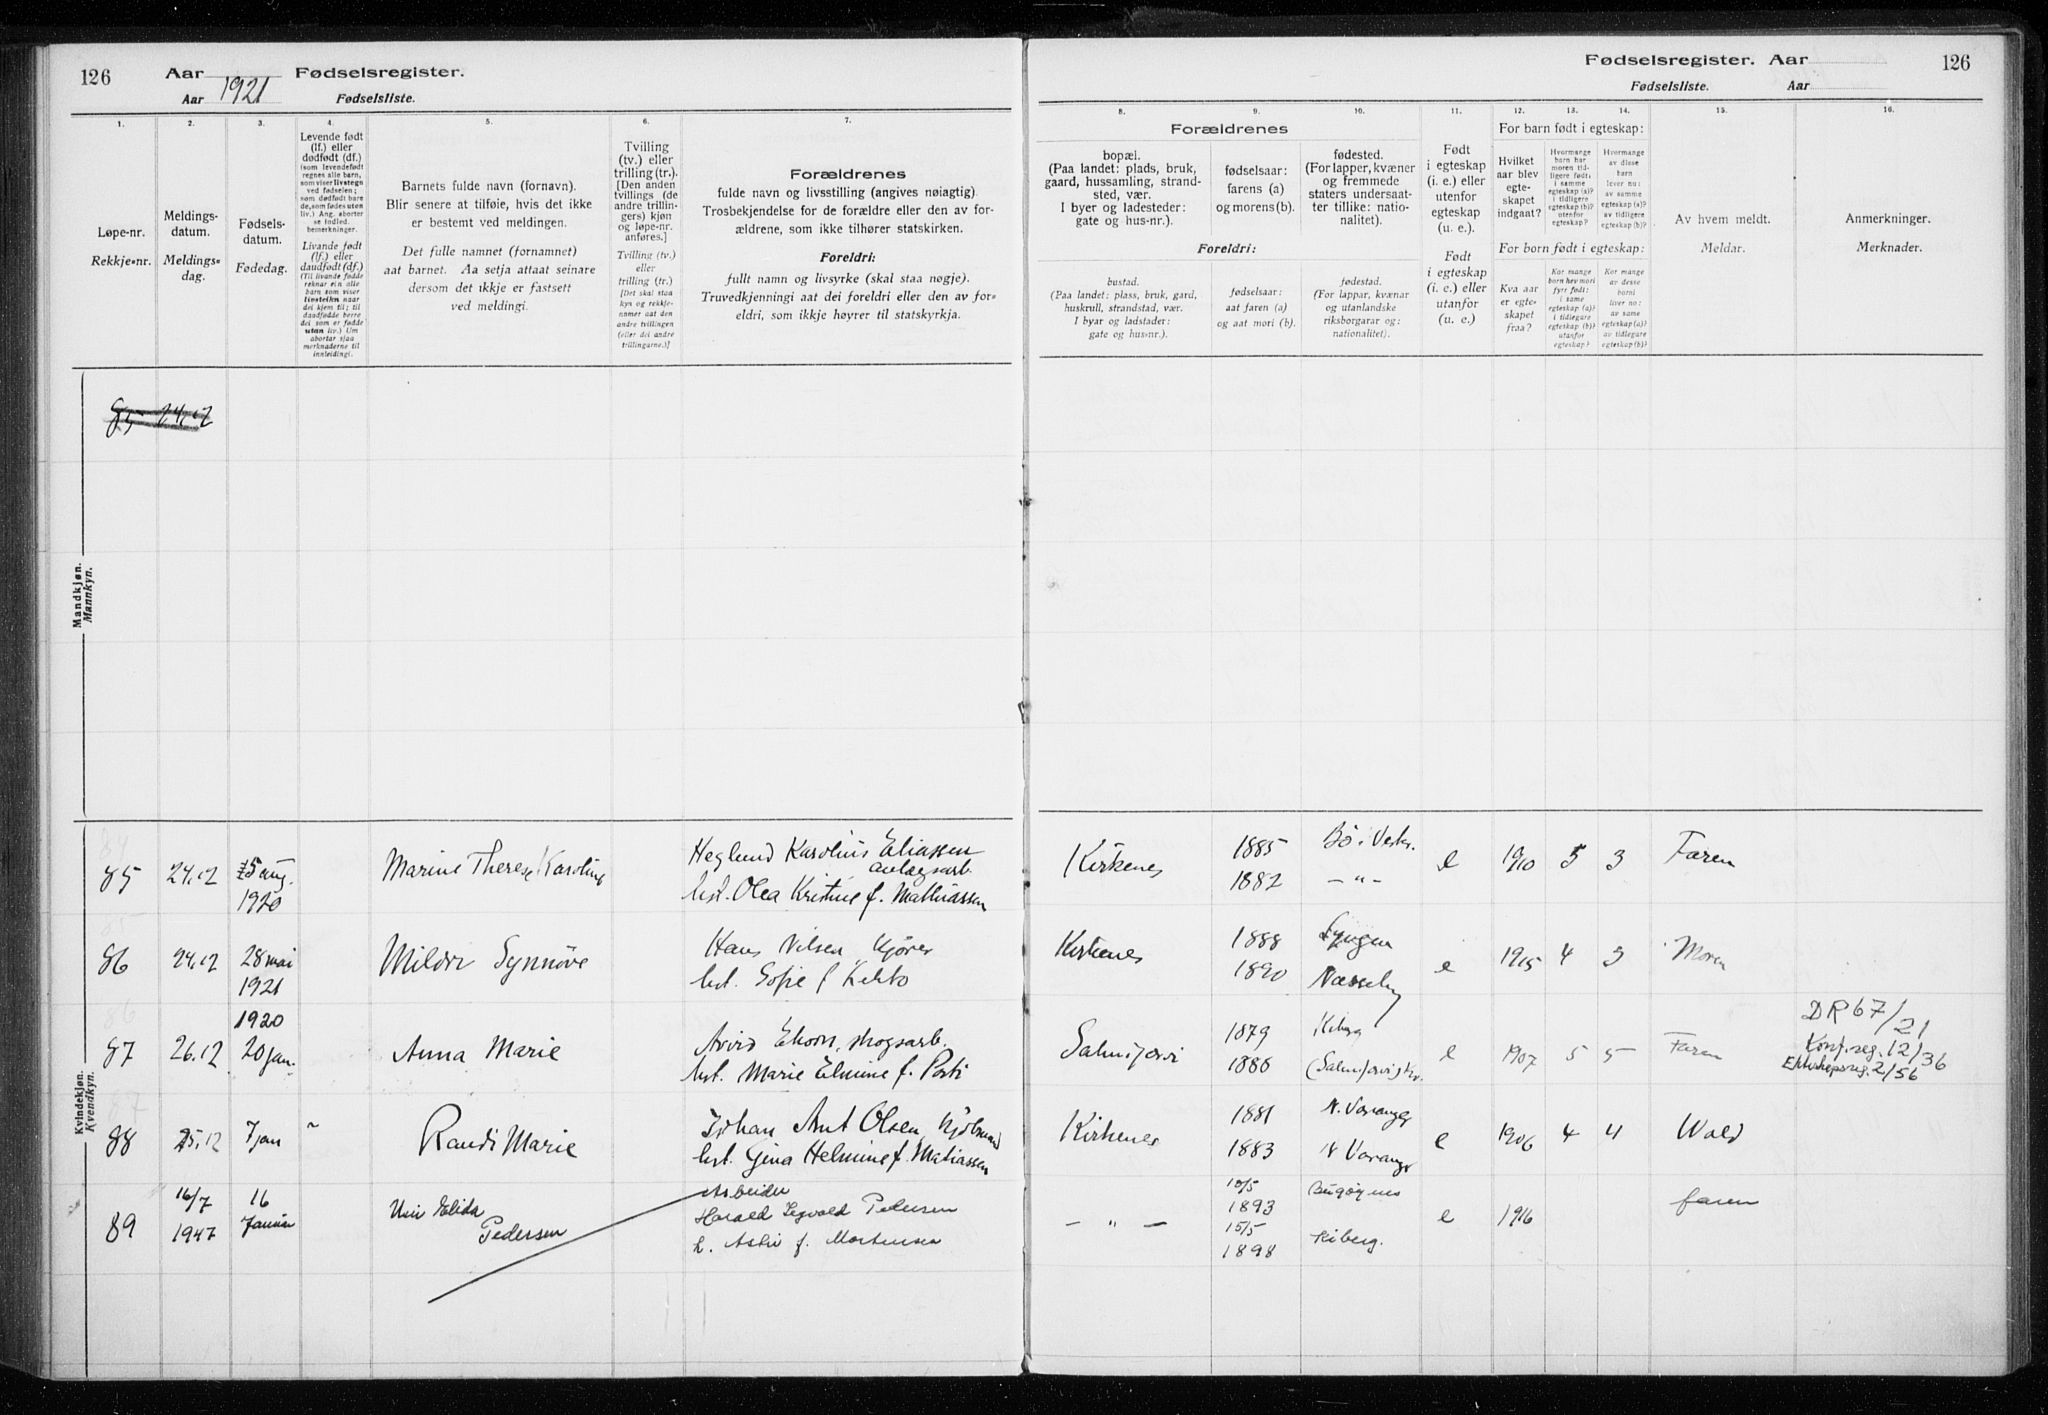 126 Aar 1921 Fødselsregister.
Aar Fødselsliste.
Fødselsregister. Aar 126
Fødselsliste. Aar
1. 2. 3. 4. 5. 6. 7.
Løpe-nr.
Rekkje-nr.
Meldings-
datum.
Meldings-
dag.
Fødsels-
datum.
Fødedag.
Levende født
(lf.) eller
dødfødt (df.)
(som levendefødt
regnes alle barn,
som viser livstegn
ved fødselen;
som dødfødt bare
de, som fødes uten
liv.) Ang. aborter
se indled.
bemerkninger.
Livande født
(lf.) eller
daudfødt (df.)
(Til livande fødde
reknar ein alle
barn som viser
livsteikn naar
dei kjem til; til
daudfødde berre
dei som er fødde
utan liv.) Um
abortar sjaa
merknaderne til
innleidingi.
Barnets fulde navn (fornavn).
Blir senere at tilføie, hvis det ikke
er bestemt ved meldingen.
Det fulle namnet (fornamnet)
aat barnet. Aa setja attaat seinare
dersom det ikkje er fastsett
ved meldingi.
Tvilling
(tv.) eller
trilling (tr.).
[Den anden
tvillings (de
andre trillin-
gers) kjøn
og løpe-nr.
anføres.]
Tvilling (tv.)
eller
trilling (tr.)
[Det skal staa
kyn og rekkje-
numer aat den
andre tvillingen
(eller dei andre
trillingarne.)]
Forældrenes
fulde navn og livsstilling (angives nøiagtig).
Trosbekjendelse for de forældre eller den av for-
ældrene, som ikke tilhører statskirken.
Foreldri:
fullt namn og livsyrke (skal staa nøgje).
Truvedkjenningi aat dei foreldri eller den av for-
eldri, som ikkje høyrer til statskyrkja.
8. 9. 10. 11. 12. 13. 14. 15. 16.
Forældrenes
bopæl.
(Paa landet: plads, bruk,
gaard, hussamling, strand-
sted, vær.
I byer og ladesteder:
gate og hus-nr.).
fødselsaar:
farens (a)
og morens (b).
fødested.
(For lapper, kvæner
og fremmede
staters undersaat-
ter tillike: natio-
nalitet).
Foreldri:
bustad.
(Paa landet: plass, bruk, gard,
huskrull, strandstad, vær.
I byar og ladstader:
gate og hus-nr.).
fødselsaar:
aat faren (a)
og aat mori (b).
fødestad.
(For lappar, kvænar
og utanlandske
riksborgarar og:
nationalitet).
Født
i egteskap
(i. e.) eller
utenfor
egteskap
(u. e.).
Født
i egteskap
(i. e.) eller
utanfor
(u. e.)
For barn født i egteskap:
Hvilket
aar blev
egte-
skapet
indgaat?
Hvormange
barn har
moren tid-
ligere født:
i samme
egteskap (a)?
i tidligere
egteskap (b)?
utenfor
egteskap?
Hvormange
av disse
barn
lever nu:
av samme
egteskap (a)?
av tidligere
egteskap (b)?
For born født i egteskap:
Kva aar
er egte-
skapet
fraa?
Kor mange
born hev mori
fyrr født:
i same
egteskap (a)?
i tidlegare
egteskap (b)?
utanfor
egteskap?
Kor mange
av desse
borni
liver no:
av same
egteskap (a)?
av tidlegare
egteskap (b)?
Av hvem meldt.
Meldar.
Anmerkninger.
Merknader.
Mandkjøn.
Mannkyn.
85 24.12
Kvindekjøn.
Kvendkyn.
85 24.12 25 aug. 1920 Marine Therese Karoline
Heglund Karolius Eliassen
anlægsarb.
hst. Olea Kristine f. Mathiassen
Kirkenes 1885 Bø i Vester.
1882 — " — e 1910 5 3 Faren
86 24.12 28 mai 1921 Mildri Synnöve
Hans Nilsen kjører
hst. Sofie f
Kirkenes 1888 Lyngen
1890 Næsseby e 1915 4 3 Moren
87 26.12 1920 20 jan. Anna Marie
Arvid Ekorn, skogsarb.
hst. Marie Elmine f. Posti
Salmijærvi 1879 Kiberg
1886 (Salmijærvi e 1907 5 5 Faren
DR 67/21
Konf.reg. 12/36
Ekteskapsreg. 2/56
88 25.12 7 jan " Randi Marie
Johan Arnt Olsen, kjøbmand
hst. Gina Helmine f. Matiassen
Kirkenes 1881 N. Varanger
1883 N Varanger e 1906 4 4 Wold
89 16/7 1947 16 Januar Uni Elida
Pedersen
Arbeider
Harald Segvald Pedersen
h. Astri f. Mortensen
— " — 10/5 1893 Bugøynes
15/5 1898 Kiberg. e 1916 faren